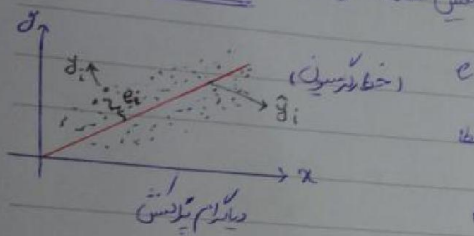 y
y_i
e_i
(خط رگرسیون)
ŷ_i
x
دیاگرام پراکنش
e